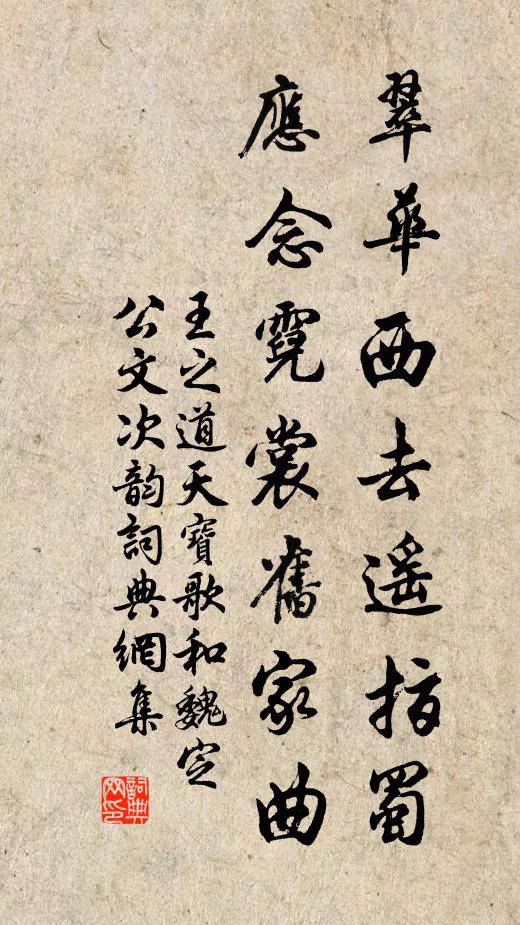 翠華西去遥指蜀
應念霓裳舊家曲
王之道天寶歌和魏定
公文次韵詞典網集
詞典
网印